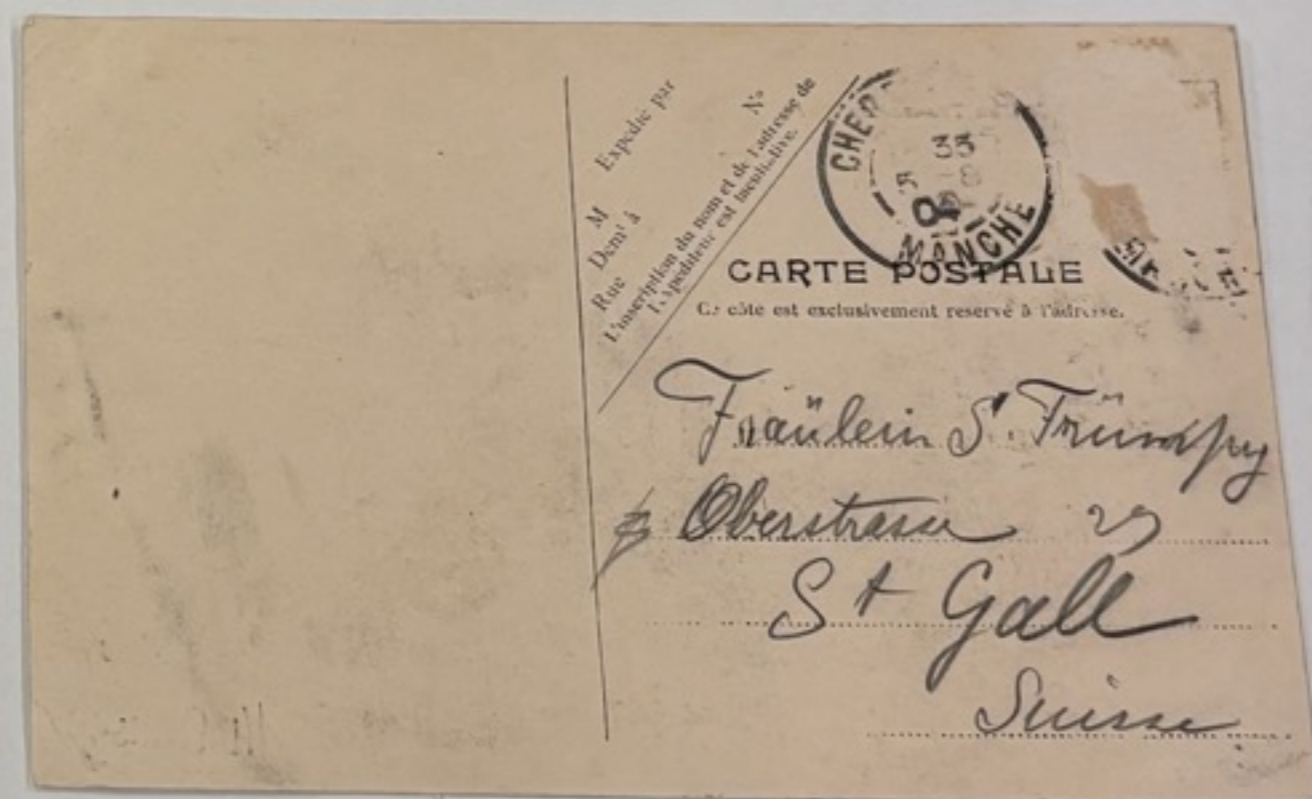 Expédié par
N°
M
Demt à
Rue
L'inscription du nom et de l'adresse de
l'expéditeur est facultative.
CHER
35
MANCHE
CARTE POSTALE
Ce côté est exclusivement reservé à l'adresse.
Fräulein S. Trümpy
Oberstrasse 29
St Gall
Suisse